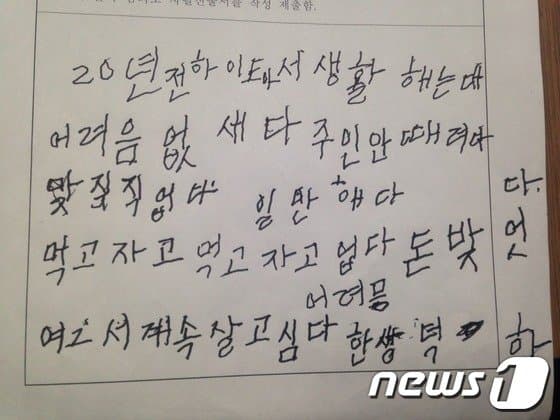 자필진술서를 작성 제출함.
20년전하이타서 생활 해는대
어려음 없 새다 주인안때려다
맞질직 업다 일만해다
먹고자고 먹고자고 업다 돈밪
어려믐
여그서 계속살고심다 한쌩덕
하 엇다.
news1